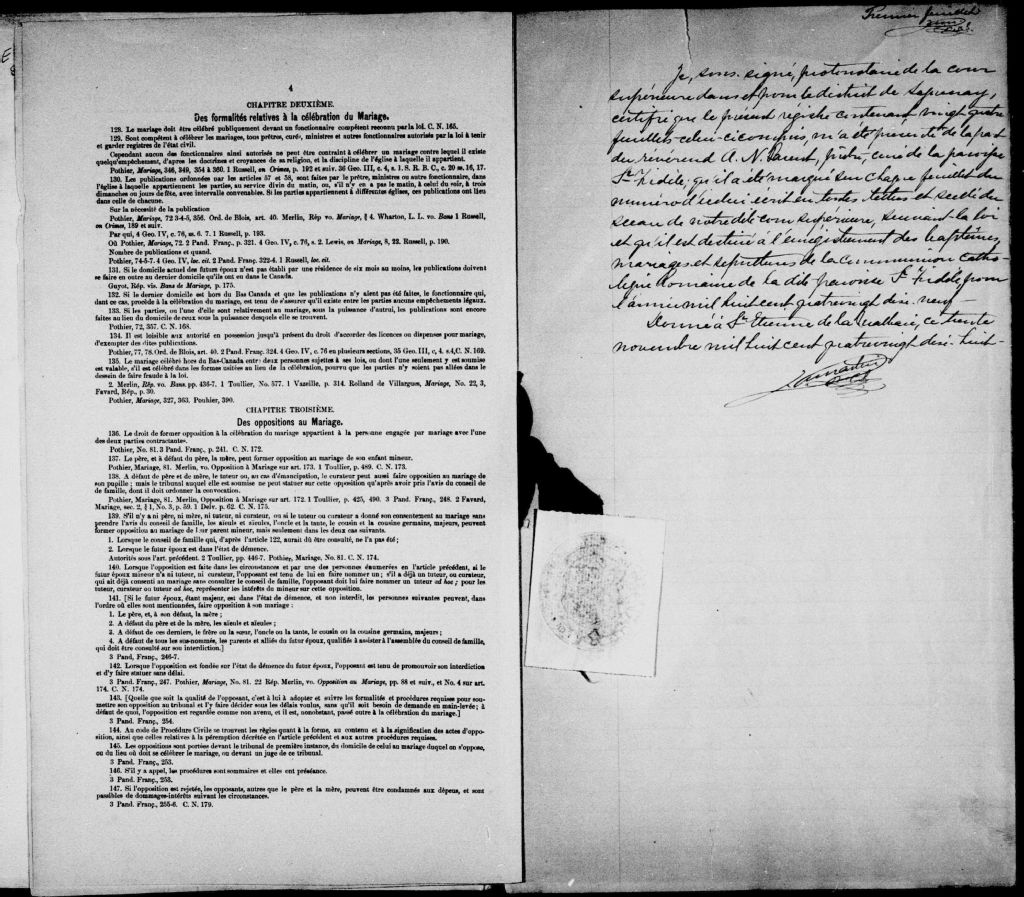 4
CHAPITRE DEUXIÈME.
Des formalités relatives à la célébration du Mariage.
128. Le mariage doit être célébré publiquement devant un fonctionnaire compétent reconnu par la loi. C. N. 165.
129. Sont compétents à célébrer les mariages, tous prêtres, curés, ministres et autres fonctionnaires autorisés par la loi à tenir
et garder registres de l'état civil.
Cependant aucun des fonctionnaires ainsi autorisés ne peut être contraint à célébrer un mariage contre lequel il existe
quelqu'empêchement, d'après les doctrines et croyances de sa religion, et la discipline de l'église à laquelle il appartient.
Pothier, Mariage, 346, 349, 354 à 360. 1 Russell, on Crimes, p. 192 et suiv. 36 Geo. III, c. 4, s. 1. S. R. B. C, c. 20 ss. 16, 17.
130. Les publications ordonnées par les articles 57 et 58, sont faites par le prêtre, ministre ou autre fonctionnaire, dans
l'église à laquelle appartiennent les parties, au service divin du matin, ou, s'il n'y en a pas le matin, à celui du soir, à trois
dimanches ou jours de fête, avec intervalles convenables. Si les parties appartiennent à différentes églises, ces publications ont lieu
dans celle de chacune.
Sur la nécessité de la publication
Pothier, Mariage, 72 3-4-5, 356. Ord. de Blois, art. 40. Merlin, Rép vo. Mariage, § 4. Wharton, L. L. vo. Bans 1 Russell,
on Crimes, 189 et suiv.
Par qui, 4 Geo. IV, c. 76, ss. 6. 7. 1 Russell, p. 193.
Où Pothier, Mariage, 72. 2 Pand. Franç., p. 321. 4 Geo. IV, c. 76, s. 2. Lewis, on Mariage, 8, 23. Russell, p. 190.
Nombre de publications et quand.
Pothier, 74-5-7. 4 Geo. IV, loc. cit. 2 Pand. Franç. 322-4. 1 Russell, loc. cit.
131. Si le domicile actuel des futurs époux n'est pas établi par une résidence de six mois au moins, les publications doivent
se faire en outre au dernier domicile qu'ils ont eu dans le Canada.
Guyot, Rép. vis. Bans de Mariage, p. 175.
132. Si le dernier domicile est hors du Bas Canada et que les publications n'y aient pas été faites, le fonctionnaire qui,
dant ce cas, procède à la célébration du mariage, est tenu de s'assurer qu'il n'existe entre les parties aucuns empêchements légaux.
133. Si les parties, ou l'une d'elle sont relativement au mariage, sous la puissance d'autrui, les publications sont encore
faites au lieu du domicile de ceux sous la puissance desquels elle se trouvent.
Pothier, 72, 357. C. N. 168.
134. Il est loisible aux autorité en possession jusqu'à présent du droit d'accorder des licences ou dispenses pour mariage,
d'exempter des dites publications.
Pothier, 77, 78. Ord. de Blois, art. 40. 2 Pand. Franç. 324. 4 Geo. IV, c. 76 en plusieurs sections, 35 Geo. III, c, 4. s.4,C. N. 169.
135. Le mariage célébré hors du Bas-Canada entre deux personnes sujettes à ses lois, ou dont l'une seulement y est soumise
est valable, s'il est célébré dans les formes usitées au lieu de la célébration, pourvu que les parties n'y soient pas allées dans le
dessein de faire fraude à la loi.
2. Merlin, Rép. vo. Bans. pp. 436-7. 1 Toullier, No. 577. 1 Vazeille, p. 314. Rolland de Villargues, Mariage, No. 22, 3,
Favard, Rép., p. 30.
Pothier, Mariage, 327, 363. Pouhier, 390.
CHAPITRE TROISIÈME.
Des oppositions au Mariage.
136. Le droit de former opposition à la célébration du mariage appartient à la personne engagée par mariage avec l'une
des deux parties contractantes.
Pothier, No. 81. 3 Pand. Franç., p. 241. C. N. 172.
137. Le père, et à défaut du père, la mère, peut former opposition au mariage de son enfant mineur.
Pothier, Mariage, 81. Merlin, vo. Opposition à Mariage sur art. 173. 1 Toullier, p. 489. C. N. 173.
138. A défaut de père et de mère, le tuteur ou, au cas d'émancipation, le curateur peut aussi faire opposition au mariage de
son pupille; mais le tribunal auquel elle est soumise ne peut statuer sur cette opposition qu'après avoir pris l'avis du conseil de
de famille, dont il doit ordonner la convocation.
Pothier, Mariage, 81. Merlin, Opposition à Mariage sur art. 172. 1 Toullier, p. 425, 490. 3 Pand. Franç., 248. 2 Favard,
Mariage, sec. 2, § 1, No. 3, p. 59. 1 Delv. p. 62. C. N. 175.
139. S'il n'y a ni père, ni mère, ni tuteur, ni curateur, ou si le tuteur ou curateur a donné son consentement au mariage sans
prendre l'avis du conseil de famille, les aïeuls et aïeules, l'oncle et la tante, le cousin et la cousine germains, majeurs, peuvent
former opposition au mariage de leur parent mineur, mais seulement dans les deux cas suivants.
1. Lorsque le conseil de famille qui, d'après l'article 122, aurait dû être consulté, ne l'a pas été;
2. Lorsque le futur époux est dans l'état de démence.
Autorités sous l'art. précédent. 2 Toullier, pp. 446-7. Pothier, Mariage, No. 81. C. N. 174.
140. Lorsque l'opposition est faite dans les circonstances et par une des personnes énumerées en l'article précédent, si le
futur époux mineur n'a ni tuteur, ni curateur, l'opposant est tenu de lui en faire nommer un; s'il a déjà un tuteur, ou curateur,
qui ait déjà consenti au mariage sans consulter le conseil de famille, l'opposant doit lui faire nommer un tuteur ad hoc; pour les
tuteur, curateur ou tuteur ad hoc, représenter les intérêts du mineur sur cette opposition.
141. [Si le futur époux, étant majeur, est dans l'état de démence, et non interdit, les personnes suivantes peuvent, dans
l'ordre où elles sont mentionnées, faire opposition à son mariage :
1. Le père, et, à son défaut, la mère;
2. A défaut du père et de la mère, les aïeuls et aïeules;
3. A défaut de ces derniers, le frère ou la sœur, l'oncle ou la tante, le cousin ou la cousine germains, majeurs;
4. A défaut de tous les sus-nommés, les parents et alliés du futur époux, qualifiés à assister à l'assemblée du conseil de famille,
qui doit être consulté sur son interdiction.]
3 Pand, Franç., 246-7.
142. Lorsque l'opposition est fondée sur l'état de démence du futur époux, l'opposant est tenu de promouvoir son interdiction
et d'y faire statuer sans délai.
3 Pand. Franç., 247. Pothier, Mariage, No. 81. 22 Rép. Merlin, vo. Opposition au Mariage, pp. 88 et suiv., et No. 4 sur art.
174. C. N. 174.
143. [Quelle que soit la qualité de l'opposant, c'est à lui à adopter et suivre les formalités et procédures requises pour sou-
mettre son opposition au tribunal et l'y faire décider sous les délais voulus, sans qu'il soit besoin de demande en main-levée; à
défaut de quoi, l'opposition est regardée comme non avenu, et il est, nonobstant, passé outre à la célébration du mariage.]
3 Pand. Franç., 254.
144. Au code de Procédure Civile se trouvent les règles quant à la forme, au contenu et à la signification des actes d'oppo-
sition, ainsi que celles relatives à la péremption décrétée en l'article précédent et aux autres procédures requises.
145. Les oppositions sont portées devant le tribunal de première instance, du domicile de celui au mariage duquel on s'oppose,
ou du lieu où doit se célébrer le mariage, ou devant un juge de ce tribunal.
3 Pand. Franç., 253.
146. S'il y a appel, les procédures sont sommaires et elles ont préséance.
3 Pand. Franç., 253.
147. Si l'opposition est rejetée, les opposants, autres que le père et la mère, peuvent être condamnés aux dépens, et sont
passibles de dommages-intérêts suivant les circonstances.
3 Pand. Franç., 255-6. C. N. 179.
Premier feuillet
Je, sous-signé, protonotaire de la cour
supérieure dans et pour le district de Saguenay,
certifie que le présent régistre contenant vingt quatre
feuillets celui-ci compris, m'a été présenté de la part
du révérend A. N. Parent, prêtre, curé de la paroisse
St Fidèle, qu'il a été marqué sur chaque feuillet du
numéro d'icelui écrit en toutes lettres et scellé du
sceau de notre dite cour supérieure, suivant la loi
et qu'il est destiné à l'enregistrement des baptêmes,
mariages et sépultures de la Communion Catho-
lique Romaine de la dite paroisse St Fidèle, pour
l'année mil huit cent quatrevingt dix-neuf —
Donné à St Etienne de la Malbaie, ce trente
novembre mil huit cent quatrevingt dix-huit —